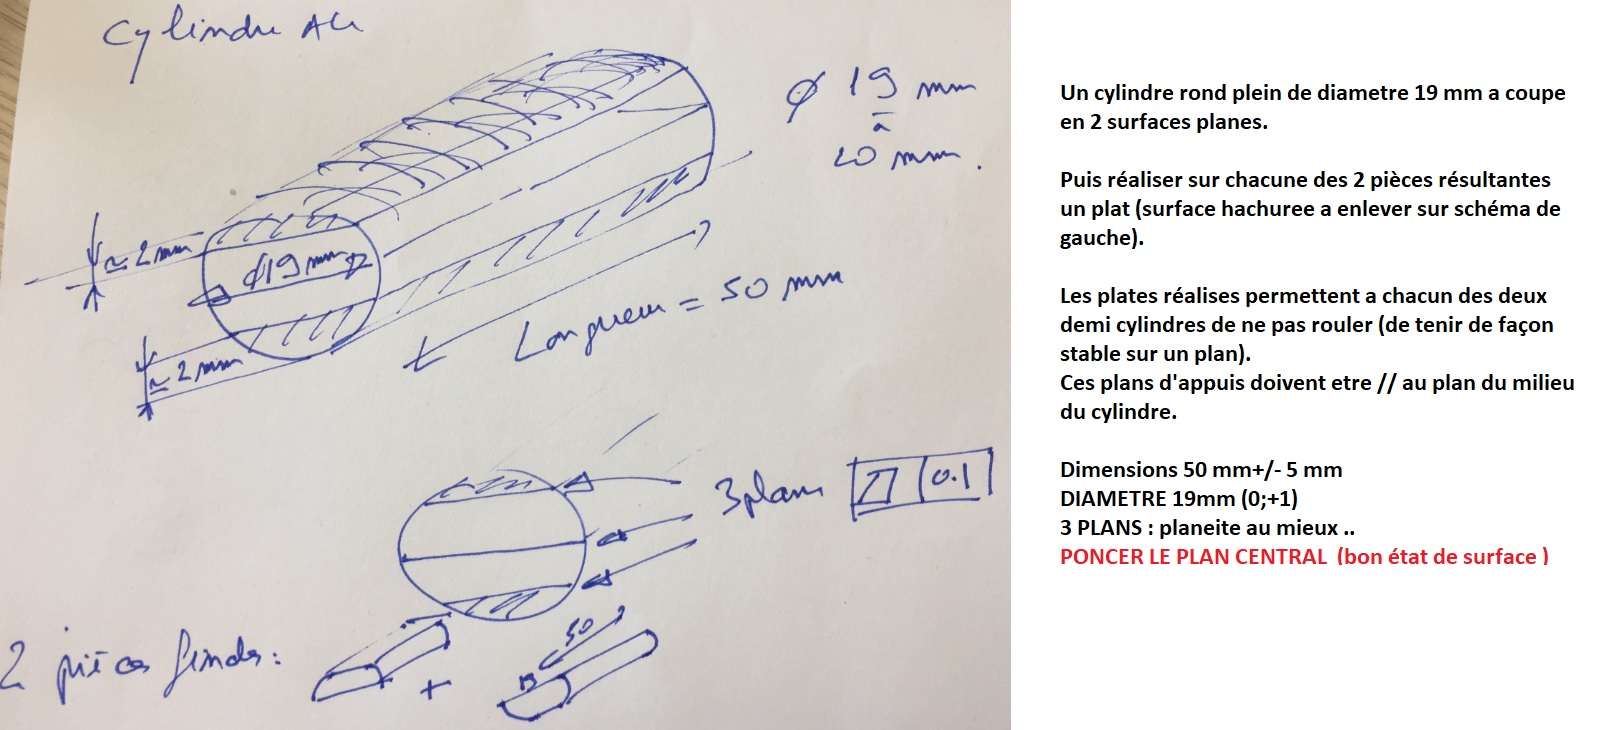 Cylindre Alu
Ø 19 mm
à
20 mm.
≃ 2 mm
Ø 19 mm
≃ 2 mm
Longueur = 50 mm
3 plans
0.1
2 pièces finales:
50
+
19
Un cylindre rond plein de diametre 19 mm a coupe
en 2 surfaces planes.
Puis réaliser sur chacune des 2 pièces résultantes
un plat (surface hachuree a enlever sur schéma de
gauche).
Les plates réalises permettent a chacun des deux
demi cylindres de ne pas rouler (de tenir de façon
stable sur un plan).
Ces plans d'appuis doivent etre // au plan du milieu
du cylindre.
Dimensions 50 mm+/- 5 mm
DIAMETRE 19mm (0;+1)
3 PLANS : planeite au mieux ..
PONCER LE PLAN CENTRAL (bon état de surface )